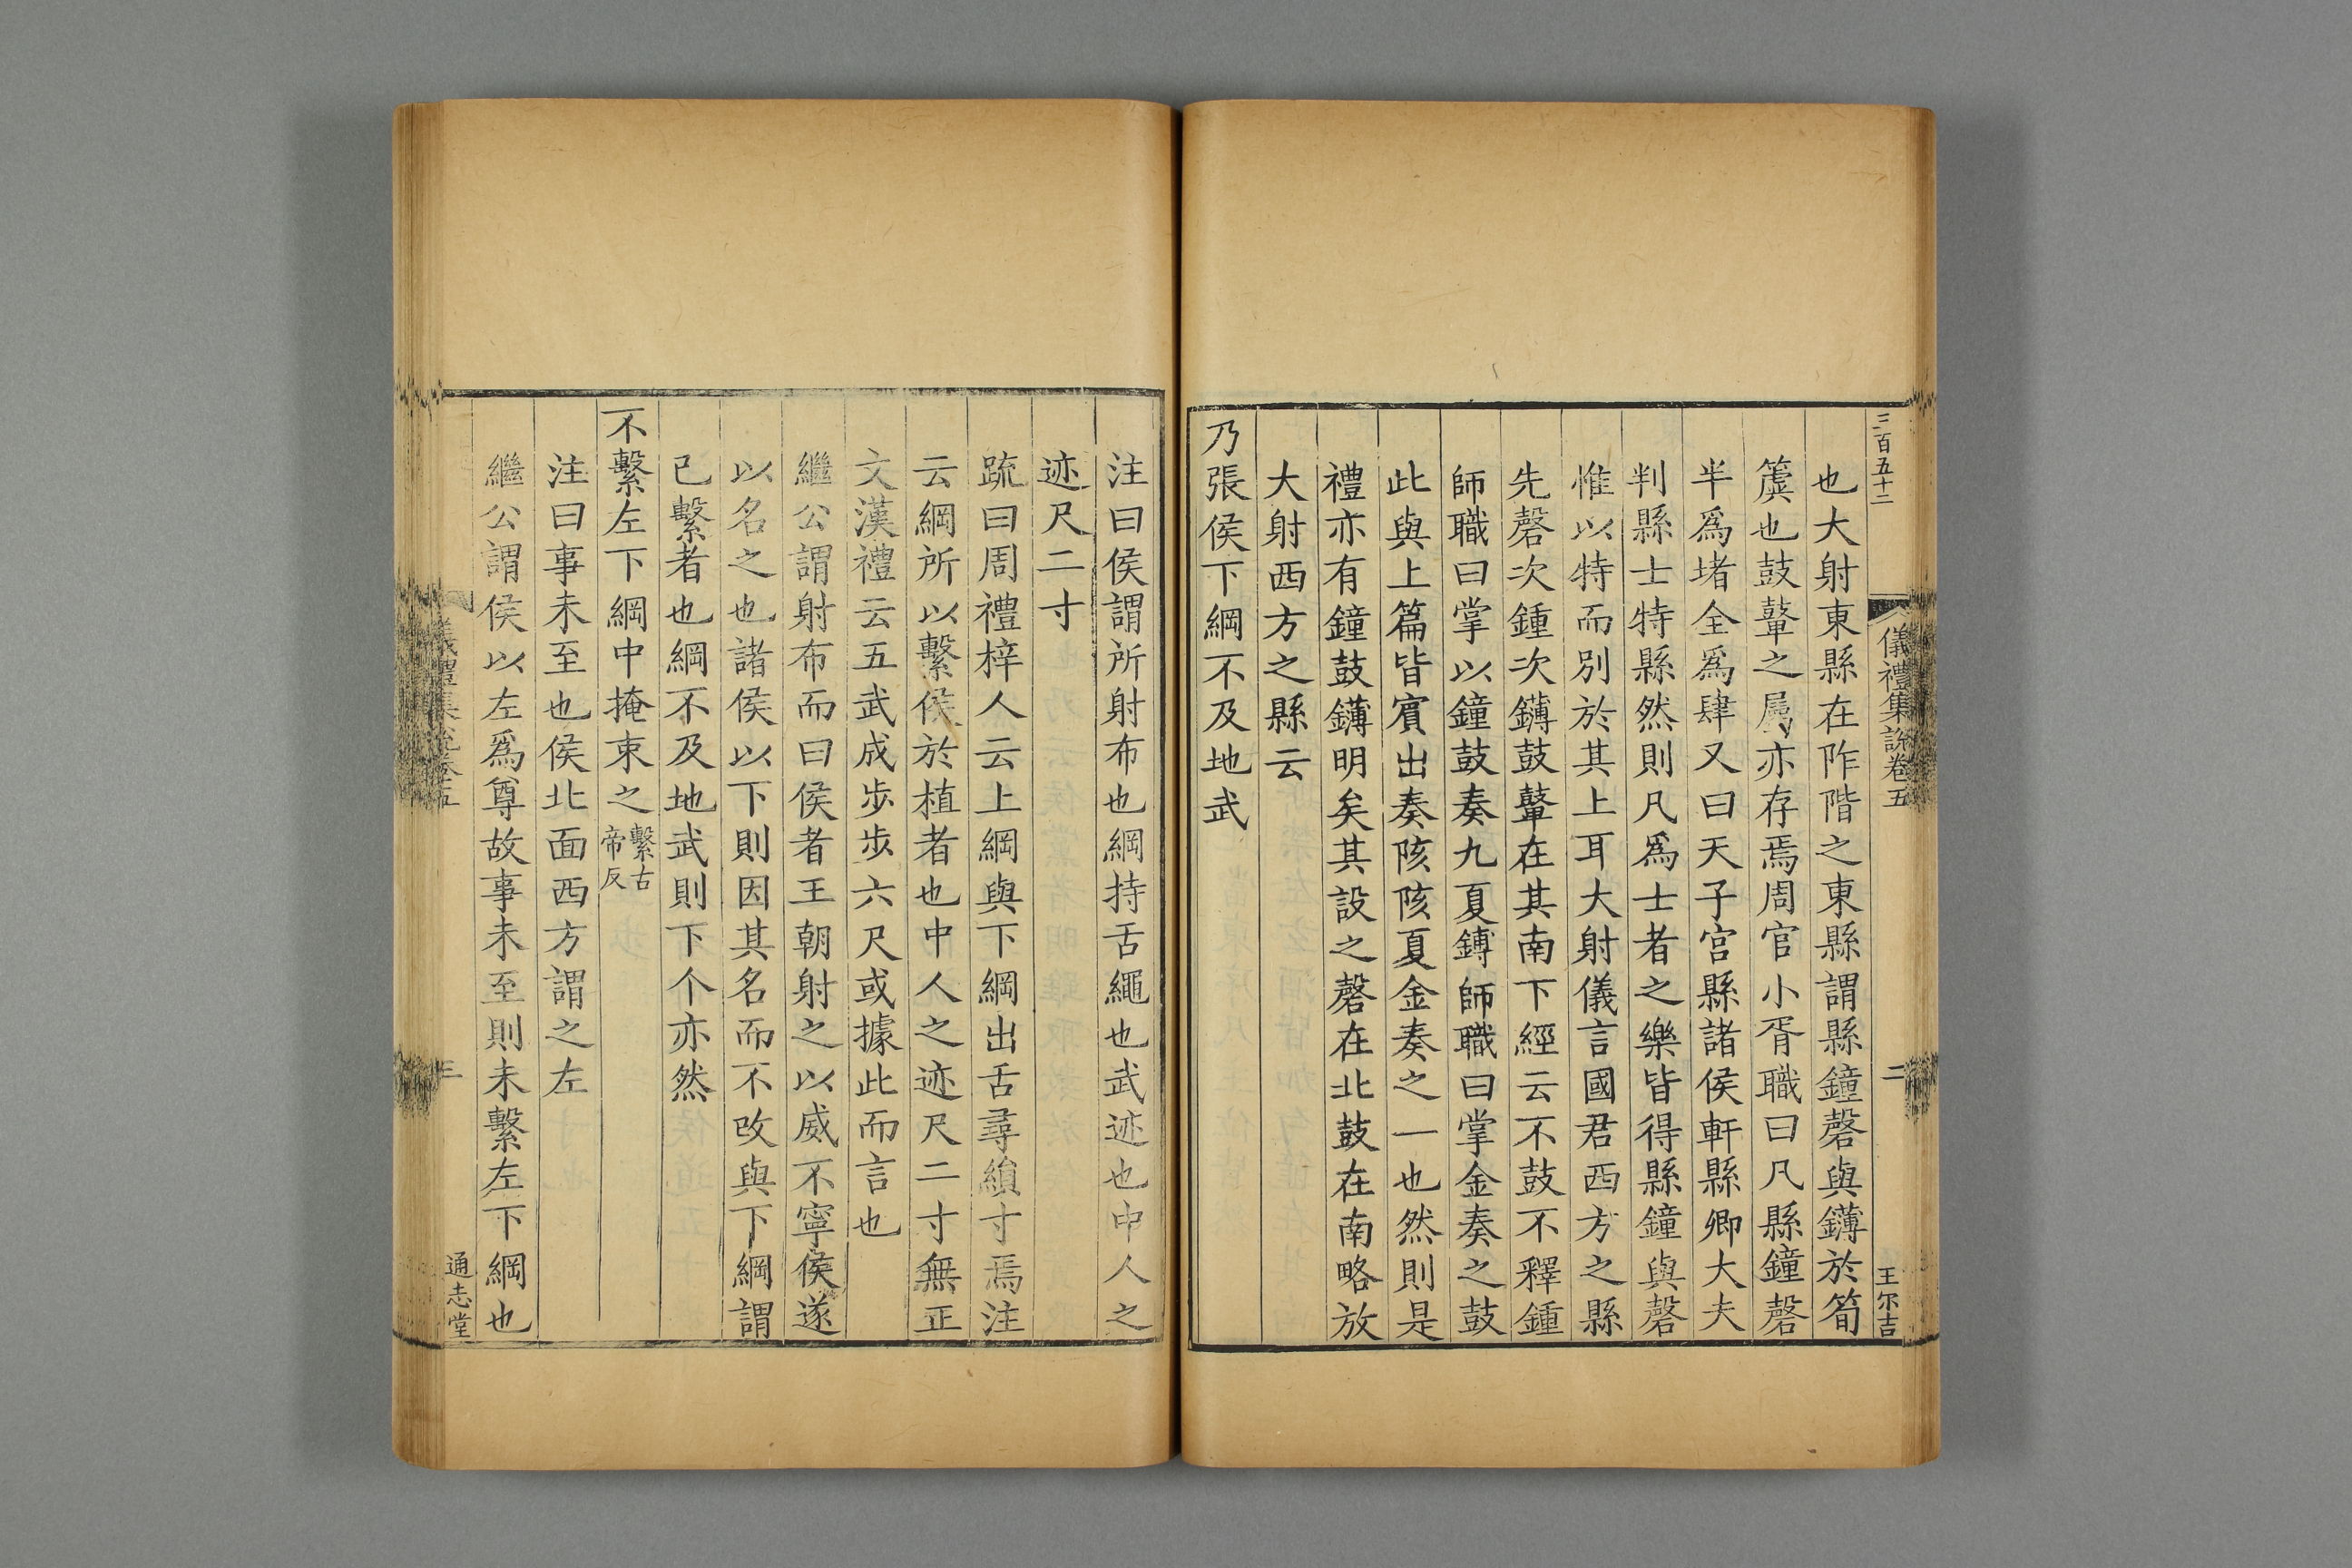 三百五十二
儀禮集說卷五
二
王尔吉
也大射東縣在阼階之東縣謂縣鐘磬與鑮於筍
簴也鼓鼙之屬亦存焉周官小胥職曰凡縣鐘磬
半爲堵全爲肆又曰天子宫縣諸侯軒縣卿大夫
判縣士特縣然則凡爲士者之樂皆得縣鐘與磬
惟以特而別於其上耳大射儀言國君西方之縣
先磬次鍾次鑮鼓鼙在其南下經云不鼓不釋鍾
師職曰掌以鐘鼓奏九夏鎛師職曰掌金奏之鼓
此與上篇皆賔出奏陔陔夏金奏之一也然則是
禮亦有鐘鼓鑮明矣其設之磬在北鼓在南略放
大射西方之縣云
乃張侯下綱不及地武
注曰侯謂所射布也綱持舌繩也武迹也中人之
迹尺二寸
疏曰周禮梓人云上綱與下綱出舌尋縜寸焉注
云綱所以繫侯於植者也中人之迹尺二寸無正
文漢禮云五武成步步六尺或據此而言也
繼公謂射布而曰侯者王朝射之以威不寧侯遂
以名之也諸侯以下則因其名而不改與下綱謂
已繫者也綱不及地武則下个亦然
不繫左下綱中掩束之繫古帝反
注曰事未至也侯北面西方謂之左
繼公謂侯以左爲尊故事未至則未繫左下綱也
儀禮集說卷五
三
通志堂